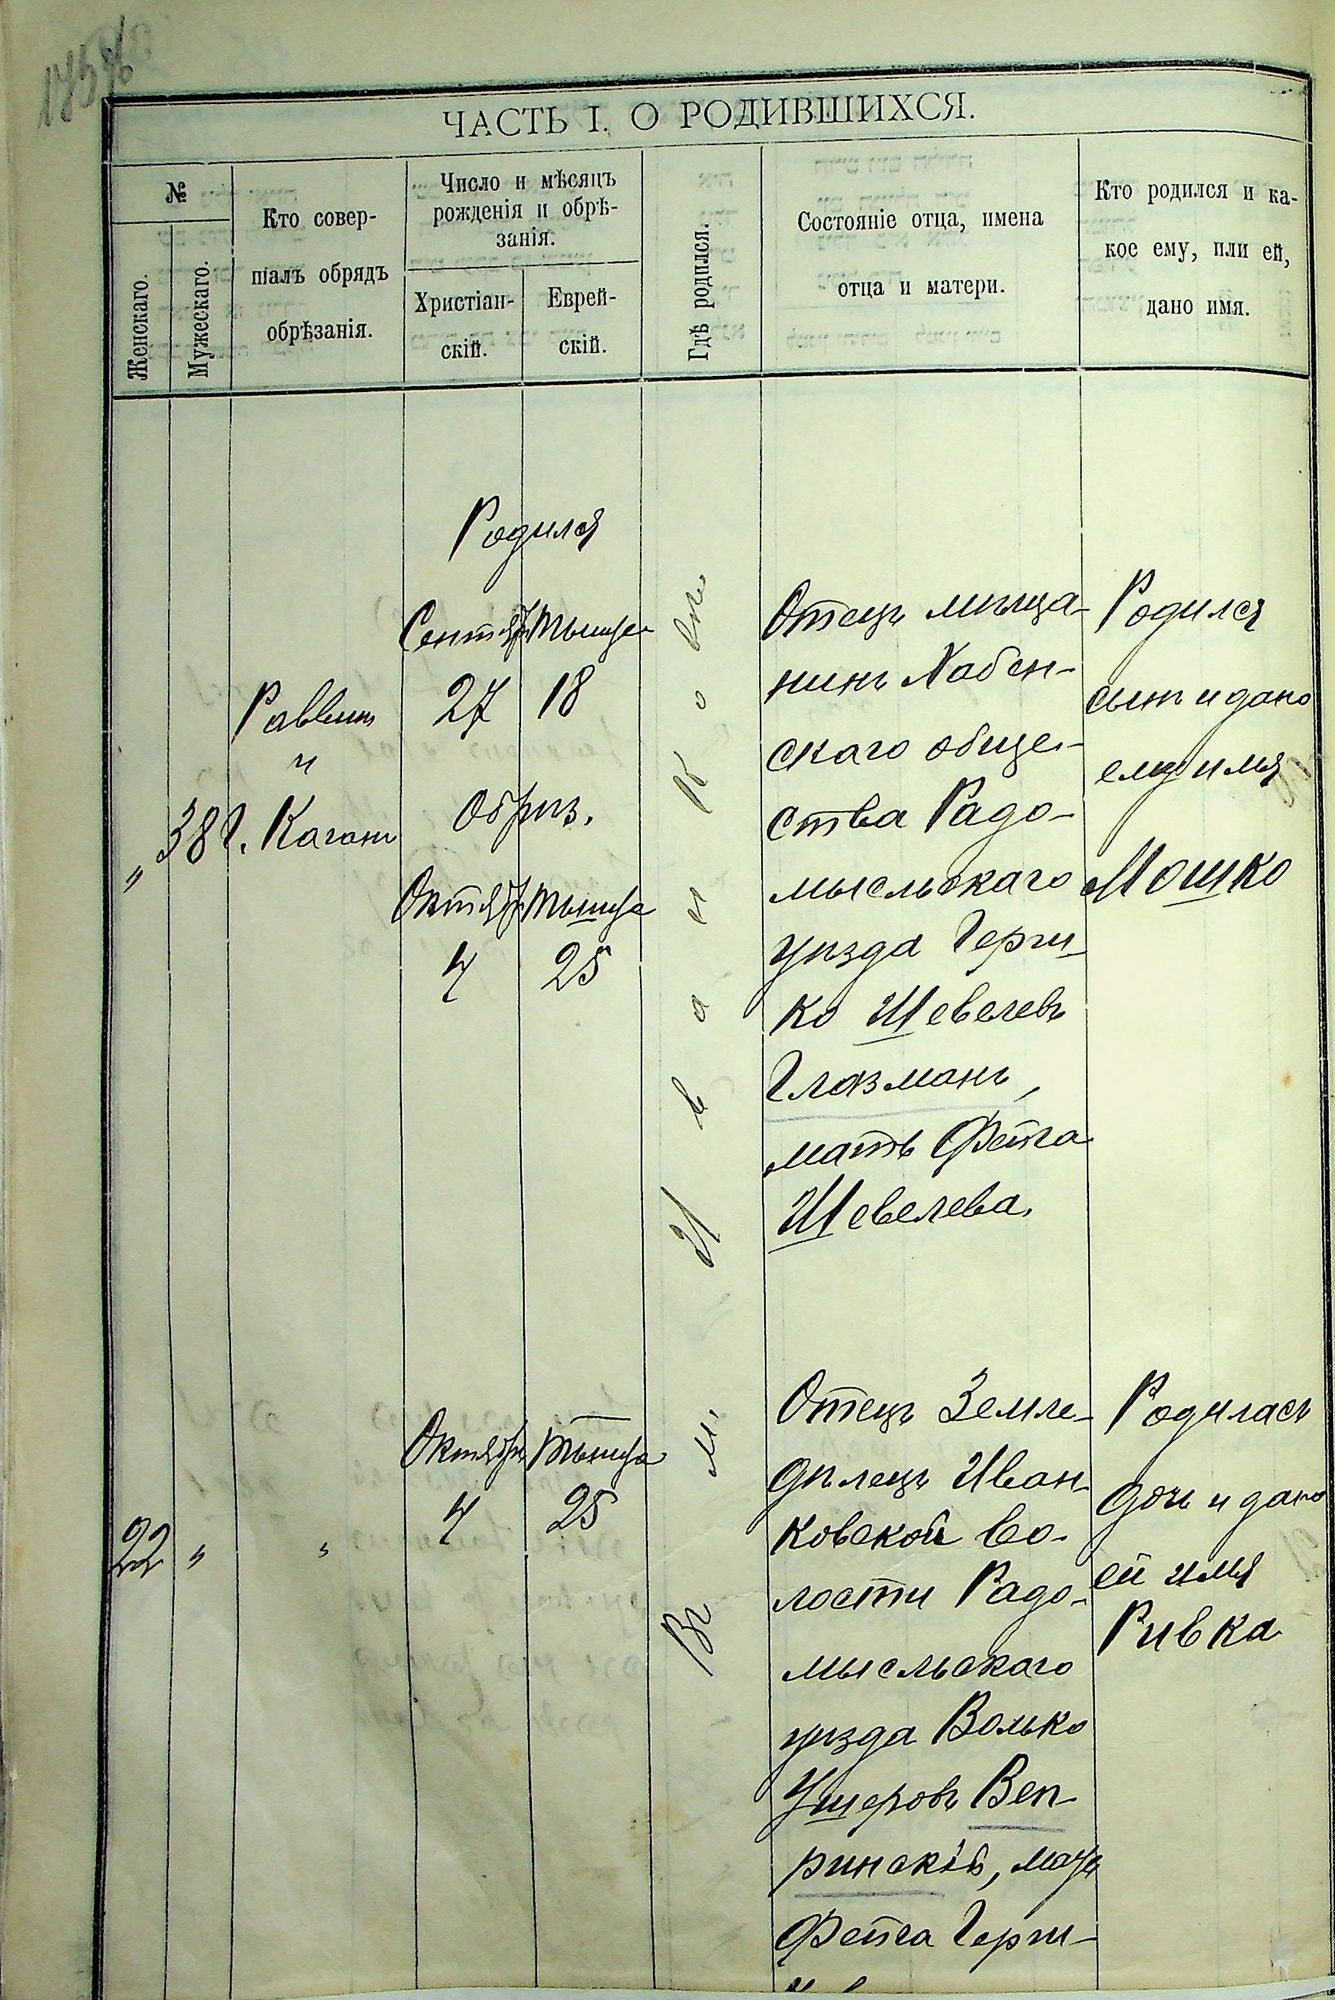 ЧАСТЬ I. О РОДИВШИХСЯ.
№
Женскаго.
Мужескаго.
Кто совер-
шалъ обрядъ
обрѣзанія.
Число и мѣсяцъ
рожденія и обрѣ-
занія.
Христіан-
скій.
Еврей-
скій.
Гдѣ родился.
Состояніе отца, имена
отца и матери.
Кто родился и ка-
кое ему, или ей,
дано имя.
"
38
Раввин
и
Г. Каганъ
Родился
27
18
Обрѣз.
4
25
Въ м. Иванковѣ
Отецъ мѣща-
нинъ Хабен-
скаго обще-
ства Радо-
мысльскаго
уѣзда Герш-
ко Шевелевъ
Глазманъ,
мать Фейга
Шевелева.
Родился
сынъ и дано
ему имя
Мошко
22
"
"
4
25
Отецъ Земле-
дѣлецъ Иван-
ковской во-
лости Радо-
мысльскаго
уѣзда Волько
Ушеровъ Веп-
ринскій, мать
Фейга Герш-
Родилась
дочь и дано
ей имя
Ривка